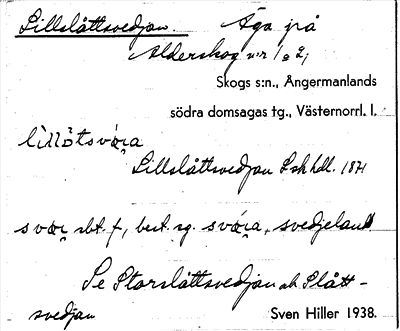 Lillslåttsvedjan Äga på
Alderskog n:r 1 o 2,
Skogs s:n., Ångermanlands
södra domsagas tg., Västernorrl. l.
lìllo̊tsvára
Lillslåttsvedjan Lskhdl. 1871
svær sbt. f, best. sg. svára, svedjeland
Se Storslåttsvedjan ok Slått-
svedjan Sven Hiller 1938.